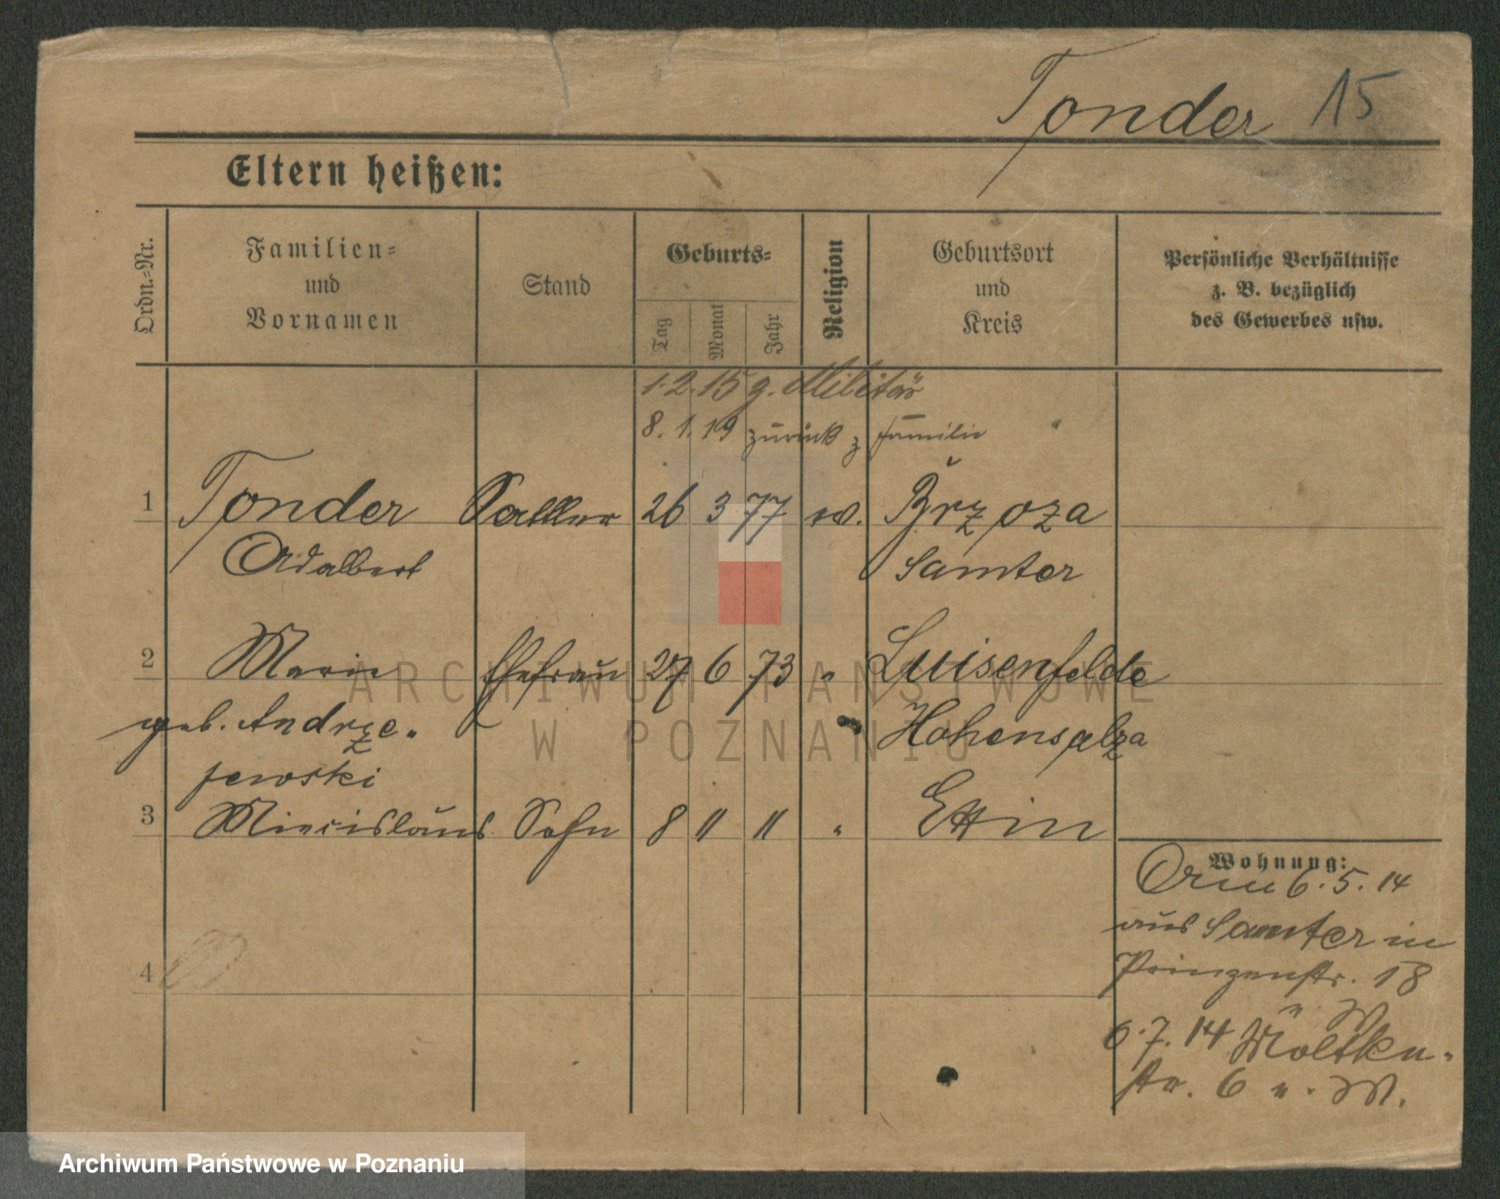 Tonder 15
Eltern heißen:
Ordn.-Nr.
Familien-
und
Vornamen
Stand
Geburts-
Tag
Monat
Jahr
Religion
Geburtsort
und
Kreis
Persönliche Verhältnisse
z. B. bezüglich
des Gewerbes usw.
1.2.15 z. Militär
8.1.19 zurück z Familie
1 Tonder Sattler 26 3 77 w. Brzoza
Adalbert Samter
2 Marie Ehefrau 27 6 73 " Luisenfelde
geb. Andrze- Hohensalza
jewski
3 Miecislaus Sohn 8 11 11 " Ettin
Wohnung:
6.5.14
aus Samter in
Prinzenstr. 18
4
6.7.14 Moltke-
str. 6 v. W.
ARCHIWUM PAŃSTWOWE
W POZNANIU
Archiwum Państwowe w Poznaniu